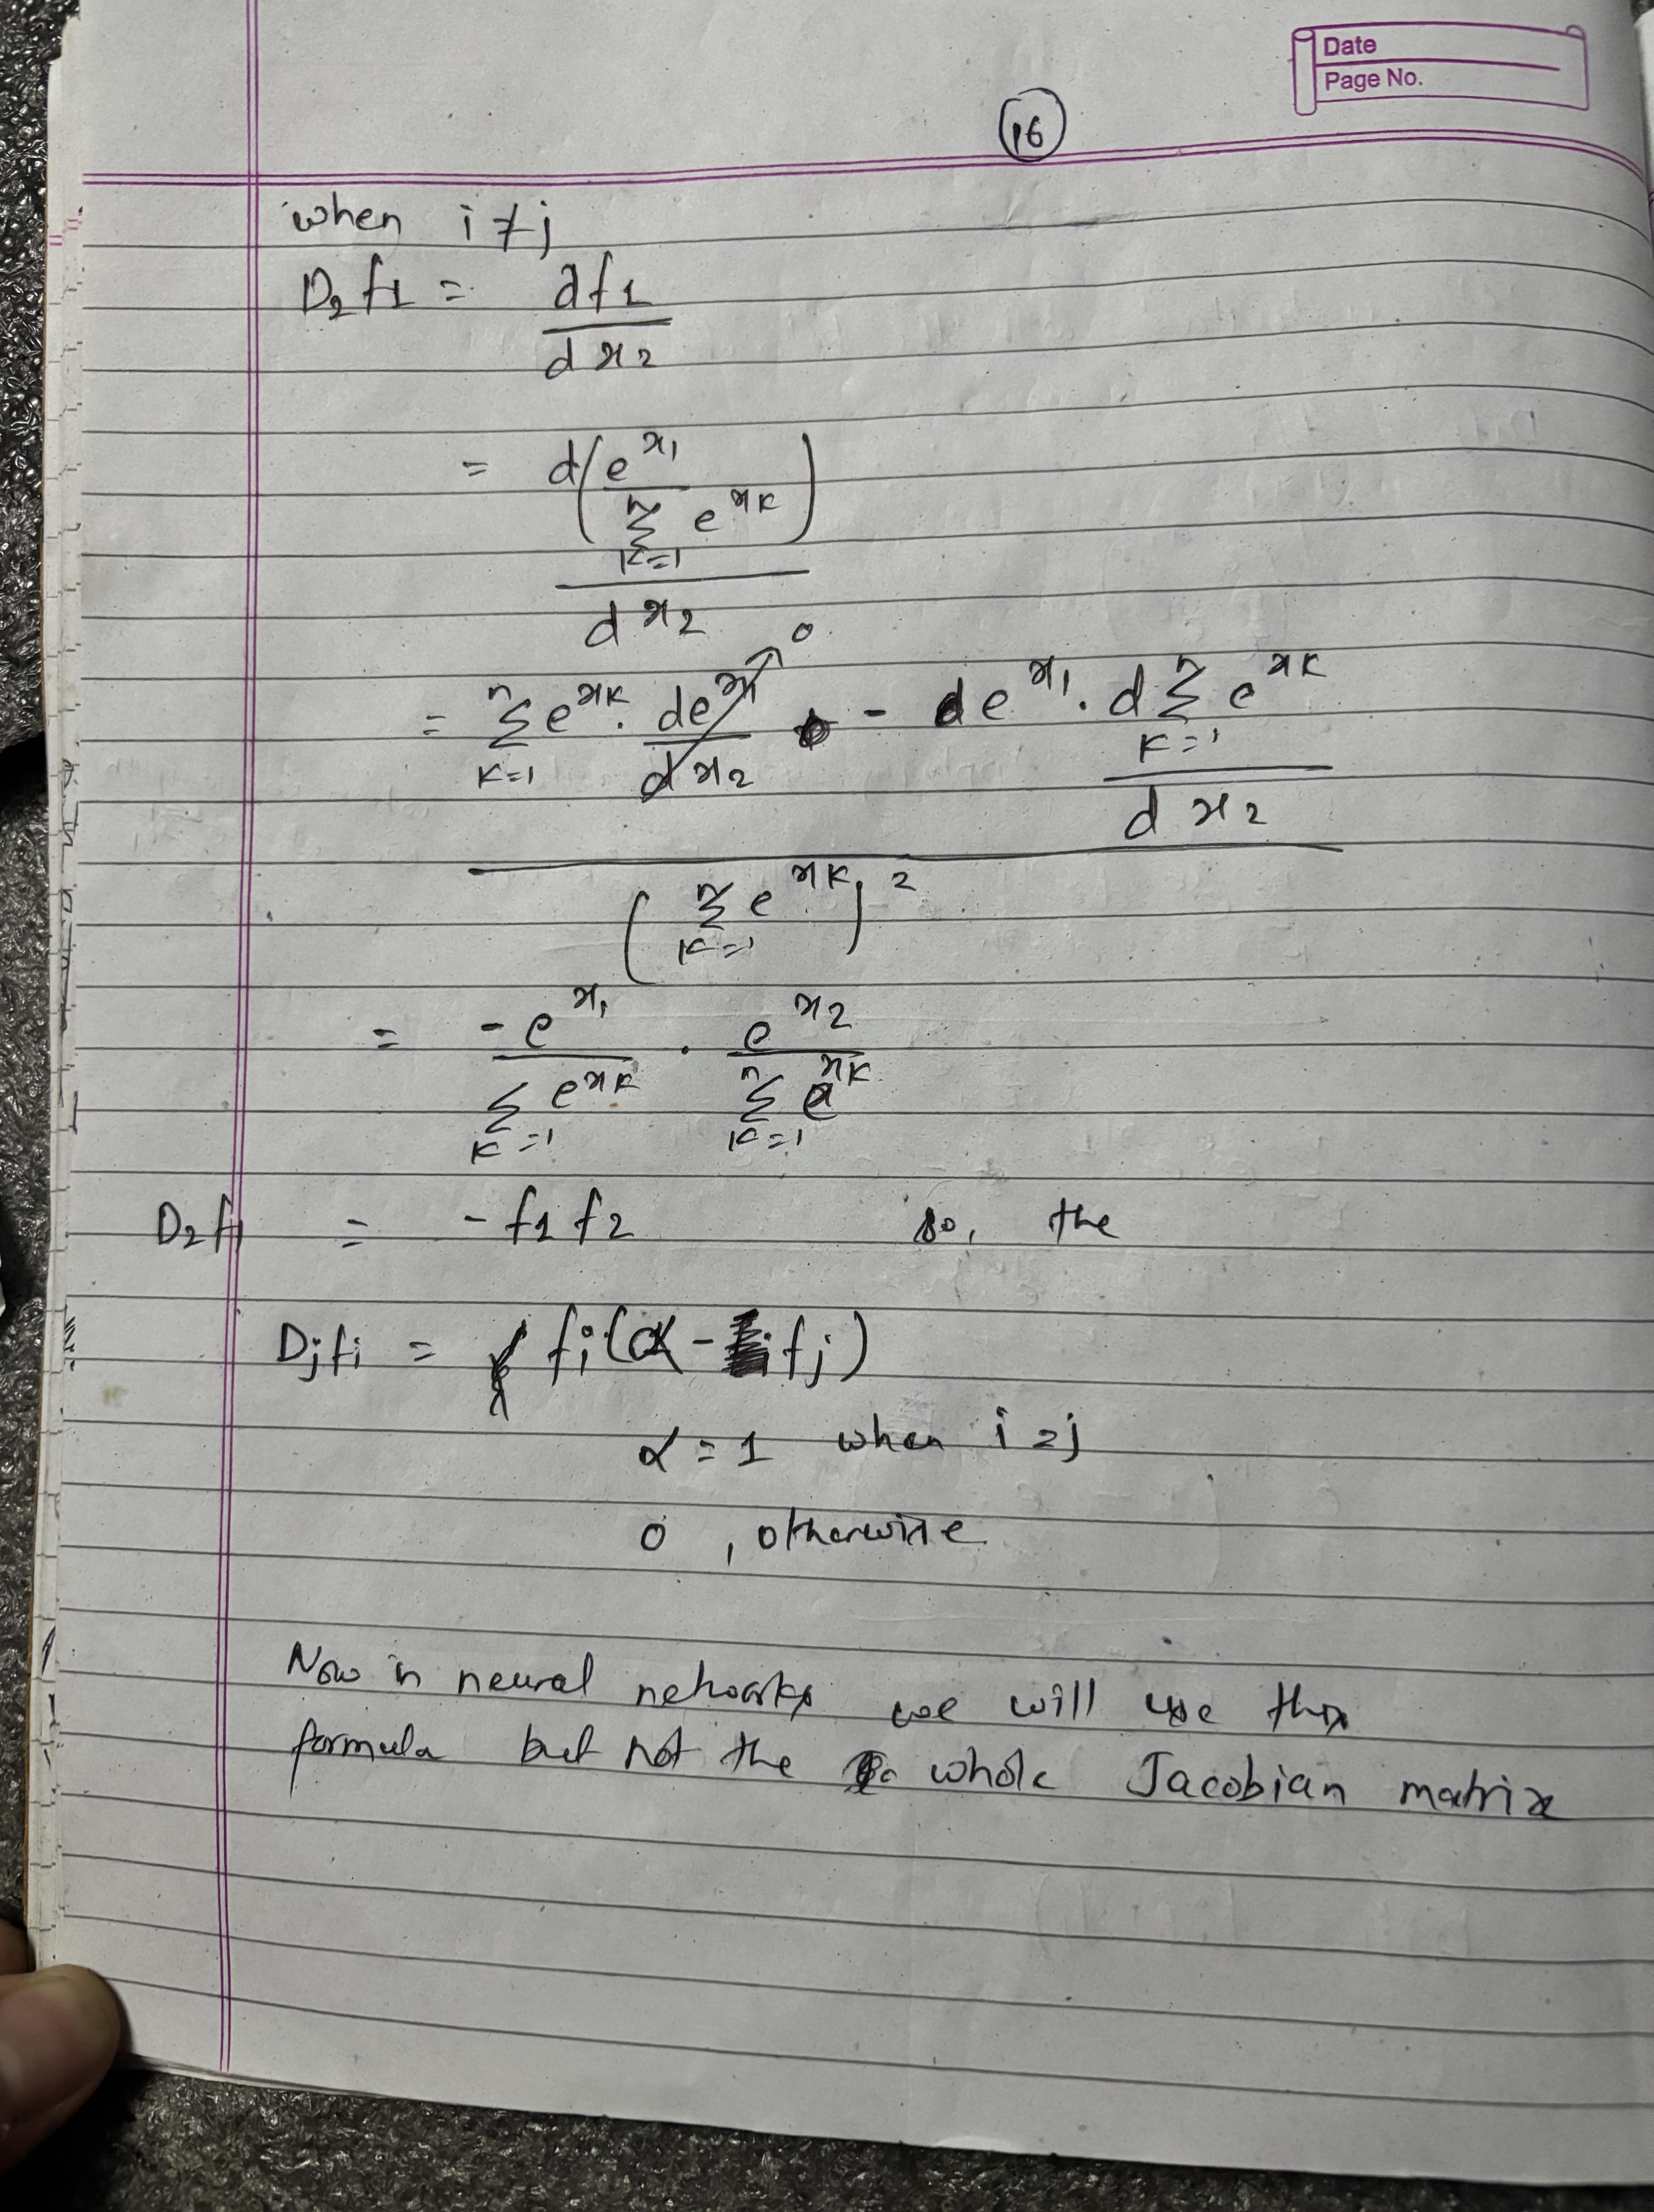 Date
Page No.
16
when i ≠ j
D₂ f1 = df1 / dx2
= d( e^x1 / Σ_{k=1}^{n} e^xk ) / dx2
= ( Σ_{k=1}^{n} e^xk . de^x1/dx2 → 0 - e^x1 . d Σ_{k=1}^{n} e^xk / dx2 ) / ( Σ_{k=1}^{n} e^xk )^2
= -e^x1 / Σ_{k=1} e^xk . e^x2 / Σ_{k=1}^{n} e^xk
D2f1 = - f1 f2 so, the
Djfi = fi(α - fj)
α = 1 when i = j
0 , otherwise
Now in neural networks we will use this
formula but not the whole Jacobian matrix